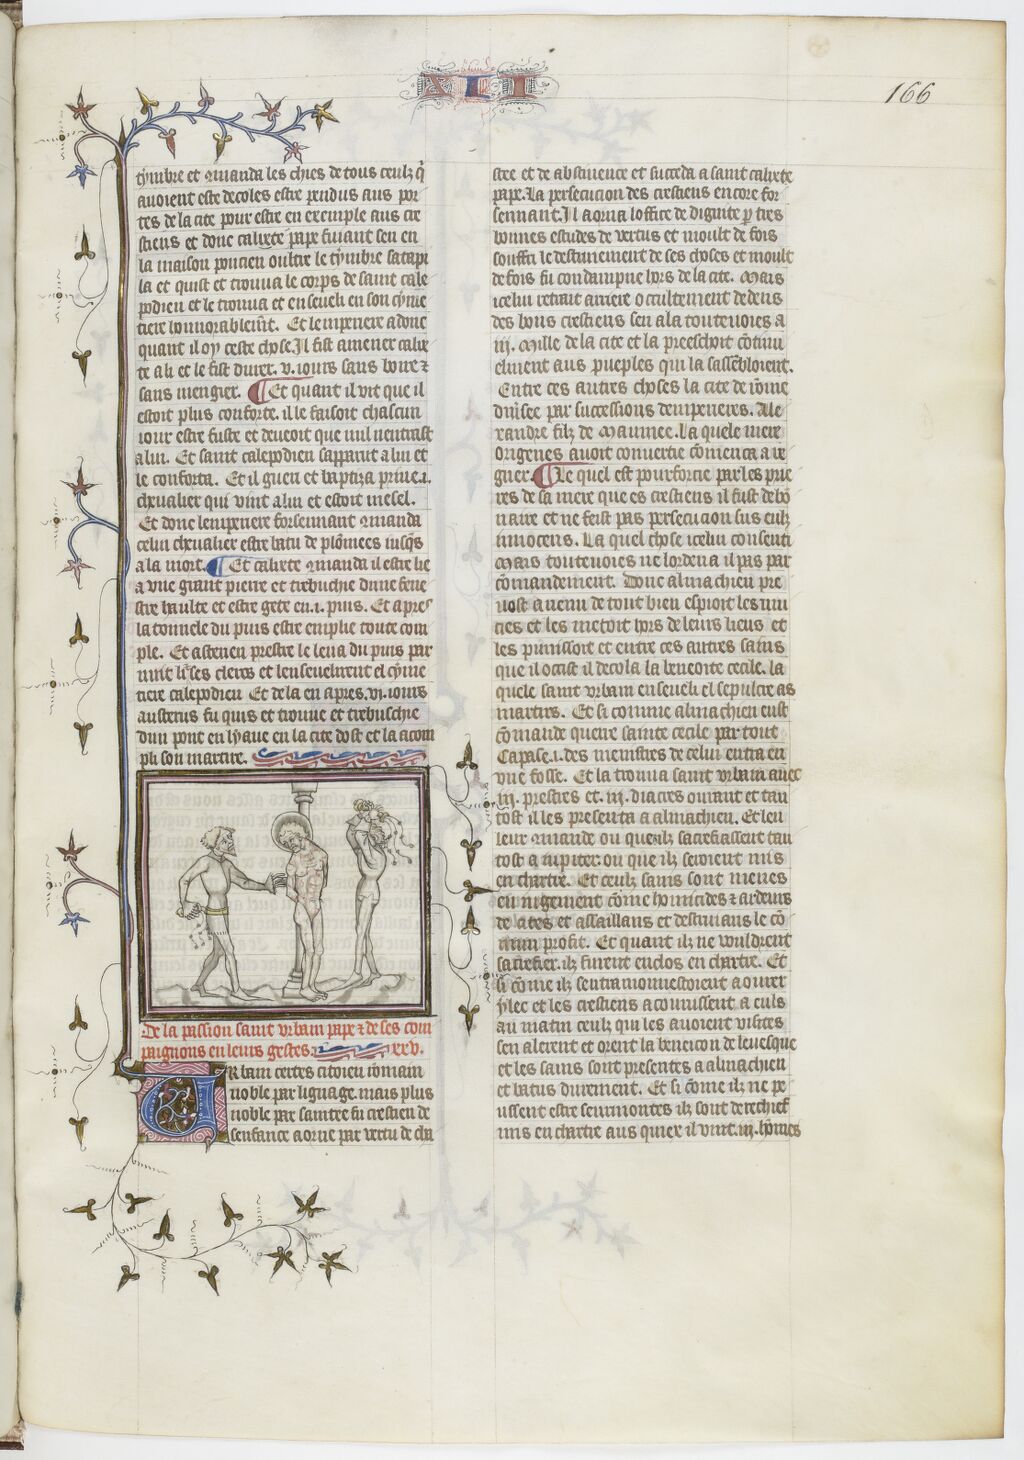 XLI
166
tymbre et manda les chies de tous ceulz q̃
auoient este decoles estre pendus aus por
tes de la cite pour estre en exemple aus cre
stiens et donc calixte pape fuiant sen en
la maison poncien oultre le tymbre satapi
la et quist et trouua le corps de saint cale
podien et le trouua et enseueli en son cyme
tiere honnorablem̃t. Et lempenere adonc
quant il oy ceste chose. Il fist amener calix
te a li et le fist durer. v. iours sans boire ⁊
sans mengier. ¶ Et quant il vit que il
estoit plus conforte. il le faisoit chascun
iour estre fuste et deueoit que nul nentrast
a lui. Et saint calepodien sapparut a lui et
le conforta. Et il gueri et baptiza priue .i.
cheualier qui vint a lui et estoit mesel.
Et donc lempenere forsennant manda
celui cheualier estre batu de plõmees iusq̃s
a la mort. ¶ Et calixte manda il estre lie
a vne grant pierre et trebuchie dune fene
stre haulte et estre gete en .i. puis. Et apres
la tonnele du puis estre emplie toute com
ple. Et asterien prestre le leua du puis par
nuit li ses clercs et lenseuelirent el cyme
tiere calepodien Et de la en apres .vi. iours
austerus fu quis et trouue et trebuschie
dun pont en lyaue en la cite dost et la acom
pli son martire.
De la passion saint vrbain pape ⁊ de ses com
paignons en leurs gestes. xxv.
Urbain certes citoien romain
noble par lignage. mais plus
noble par saintee fu crestien de
senfance aorne par vertu de cha
stee et de abstinence et succeda a saint calixte
pape. La persecucion des crestiens encore for
sennant. Il aorna loffice de dignite p̱ tres
bonnes estudes de vertus et moult de fois
souffri le destinement de ses choses et moult
de fois fu condampne hors de la cite. Mais
icelui retrait arriere occultement dedens
des bons crestiens sen ala toutenoies a
iij. mille de la cite et la preeschoit cõtinu
elment aus pueples qui la sassẽbloient.
Entre ces autres choses la cite de rõme
diuisee par successions dempereres. Ale
xandre filz de Maumee. La quele mere
origenes auoit conuertie cõmenca a re
gner. ¶ Le quel est pourforcie par les prie
res de sa mere que es crestiens il fust debõ
naire et ne feist pas persecucion sus eulz
innocens. La quel chose icelui consenti
Mais toutenoies ne lordena il pas par
cõmandement. Donc almachien pre
uost a venu de tout bien espioit les mu
cies et les metoit hors de leurs lieus et
les punissoit et entre ces autres sains
que il occist il decola la beneoite cecile. la
quele saint vrbain enseueli el sepulcre as
martirs. Et si comme almachien eust
cõmande querre sainte cecile par tout
Capase .i. des menistres de celui entra en
vne fosse. Et la trouua saint vrbain auec
iij. prestres et. iij. diacres ourant et tan
tost il les presenta a almachien. Et len
leur manda ou queilz sacrefiassent tan
tost a iupiter. ou que ilz seroient mis
en chartre. Et ceulz sains sont menes
en iugement cõme homicides ⁊ ardeurs
de cites et assaillans et destruians le cõ
mun profit. Et quant ilz ne vouldrent
sacrefier. ilz furent enclos en chartre. Et
si cõme ilz sentramonnestoient a ourer
ylec et les crestiens aconnissent a euls
au matin ceulz qui les auoient visites
sen alerent et orent la beneicon de leuesque
et les sains sont presentes a almachien
et batus durement. Et si cõme ilz ne pe
ussent estre seurmontes ilz sont derechief
mis en chartre aus quiex il vint. iij. hõmes